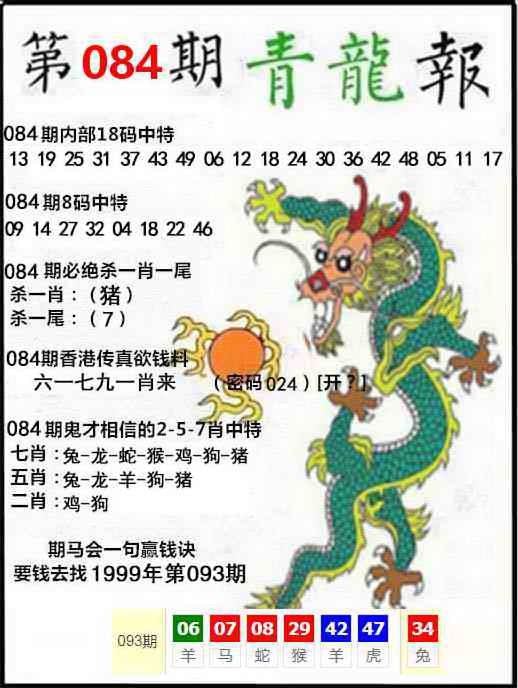 第084期青龍報
084期内部18码中特
13 19 25 31 37 43 49 06 12 18 24 30 36 42 48 05 11 17
084期8码中特
09 14 27 32 04 18 22 46
084 期必绝杀一肖一尾
杀一肖：（猪）
杀一尾：（7）
084期香港传真欲钱料
六一七九一肖来 （密码024）[开？]
084期鬼才相信的2-5-7肖中特
七肖：兔-龙-蛇-猴-鸡-狗-猪
五肖：兔-龙-羊-狗-猪
二肖：鸡-狗
期马会一句赢钱诀
要钱去找1999年第093期
093期 06 07 08 29 42 47 34
羊 马 蛇 猴 羊 虎 兔